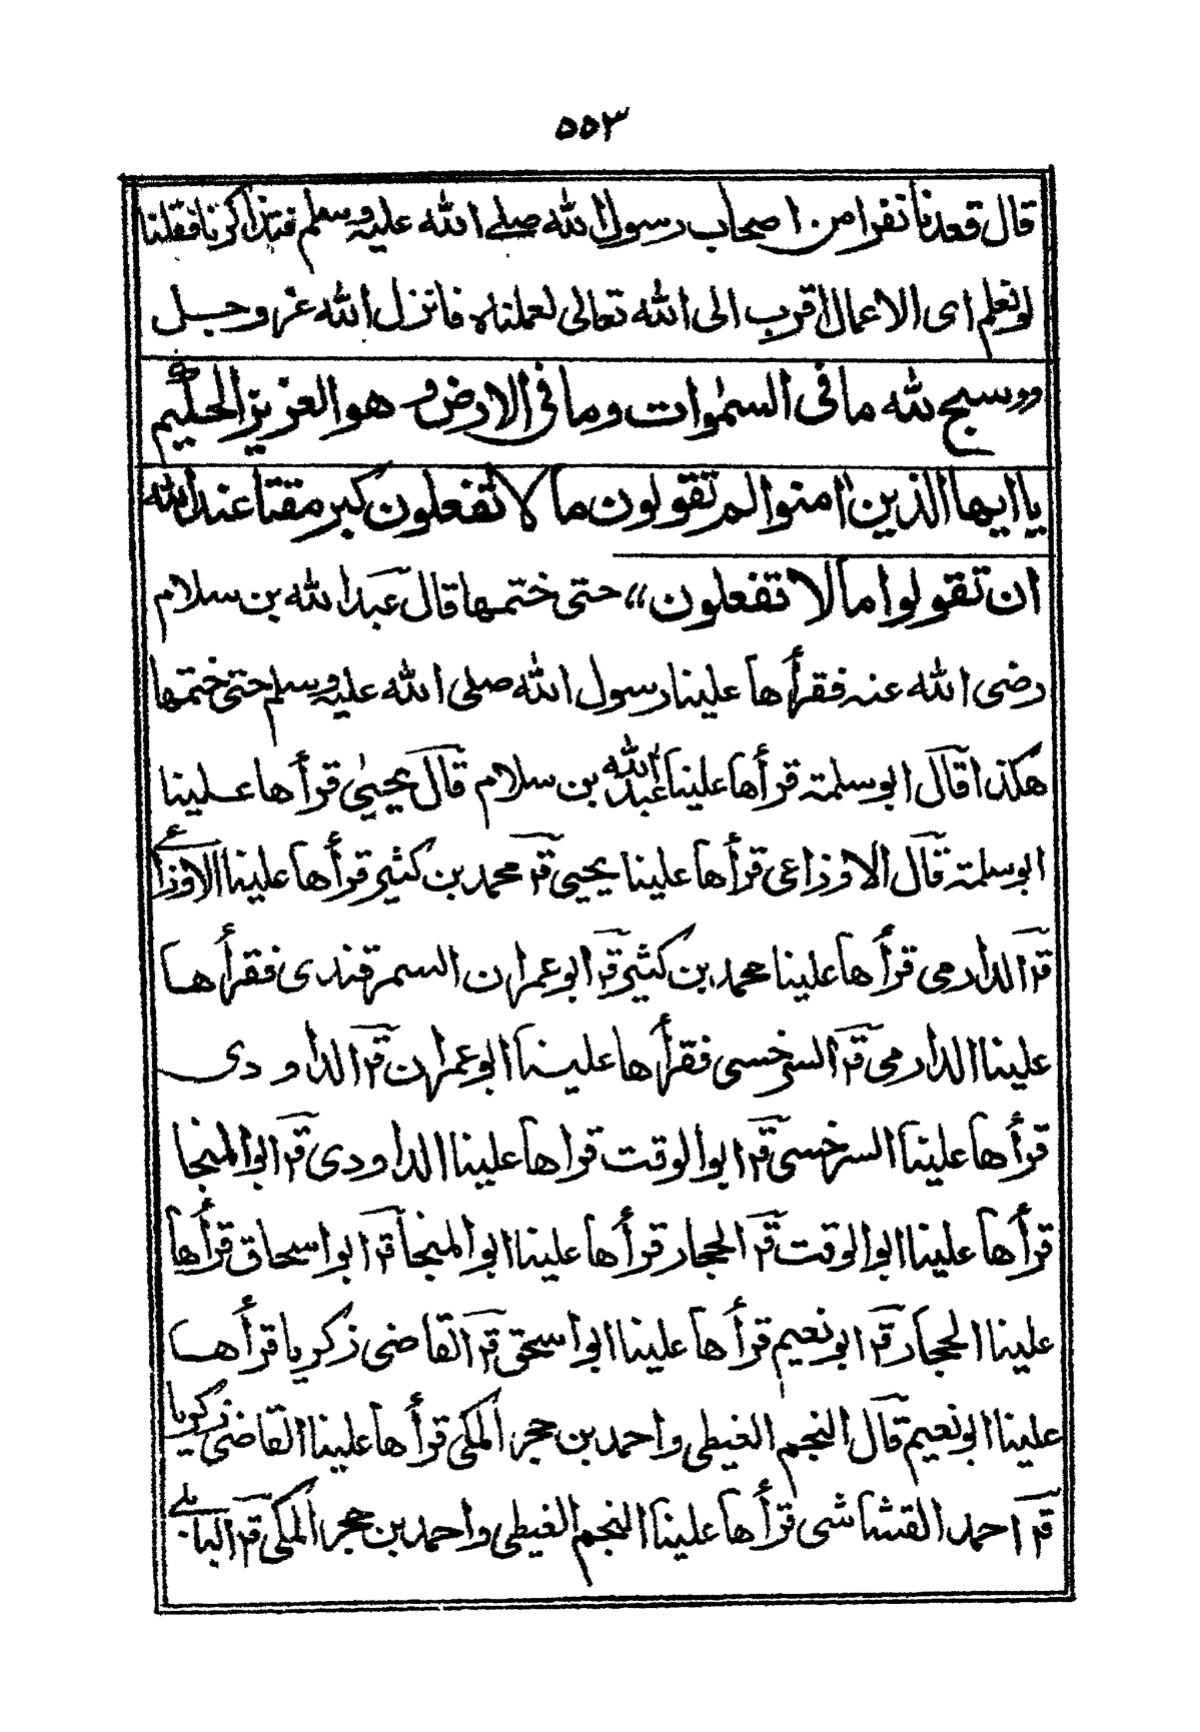 ٥٥٣
قال قعدنا نفرا من اصحاب رسول الله صلے الله عليه وسلم فتذاكرنا فقلنا
لو نعلم اى الاعمال اقرب الى الله تعالى لعملناه فانزل الله عز وجل
،،سبح لله ما فى السمٰوات وما فى الارض وهو العزيز الحكيم
يا ايها الذين اٰمنوا لم تقولون ما لا تفعلون كبر مقتا عند الله
ان تقولوا ما لا تفعلون،، حتى ختمها قال عبد الله بن سلام
رضى الله عنه فقرأها علينا رسول الله صلى الله عليه وسلم حتى ختمها
هكذا قال ابو سلمة قرأها علينا عبد الله بن سلام قال يحيىٰ قرأها علينا
ابو سلمة قال الاوزاعى قرأها علينا يحيى قر محمد بن كثير قرأها علينا الاوزاعى
قر الدارمى قرأها علينا محمد بن كثير قر ابو عمران السمرقندى فقرأها
علينا الدارمى قر السرخسى فقرأها علينا ابو عمران قر الداودى
قرأها علينا السرخسى قر ابو الوقت قراها علينا الداودى قر ابو المنجا
قرأها علينا ابو الوقت قر الحجار قرأها علينا ابو المنجا قر ابو اسحاق قرأها
علينا الحجار قر ابو نعيم قرأها علينا ابو اسحق قر القاضى زكريا قرأها
علينا ابو نعيم قال النجم الغيطى واحمد بن حجر المكى قرأها علينا القاضى زكريا
قر احمد القشاشى قرأها علينا النجم الغيطى واحمد بن حجر المكى قر البابلے